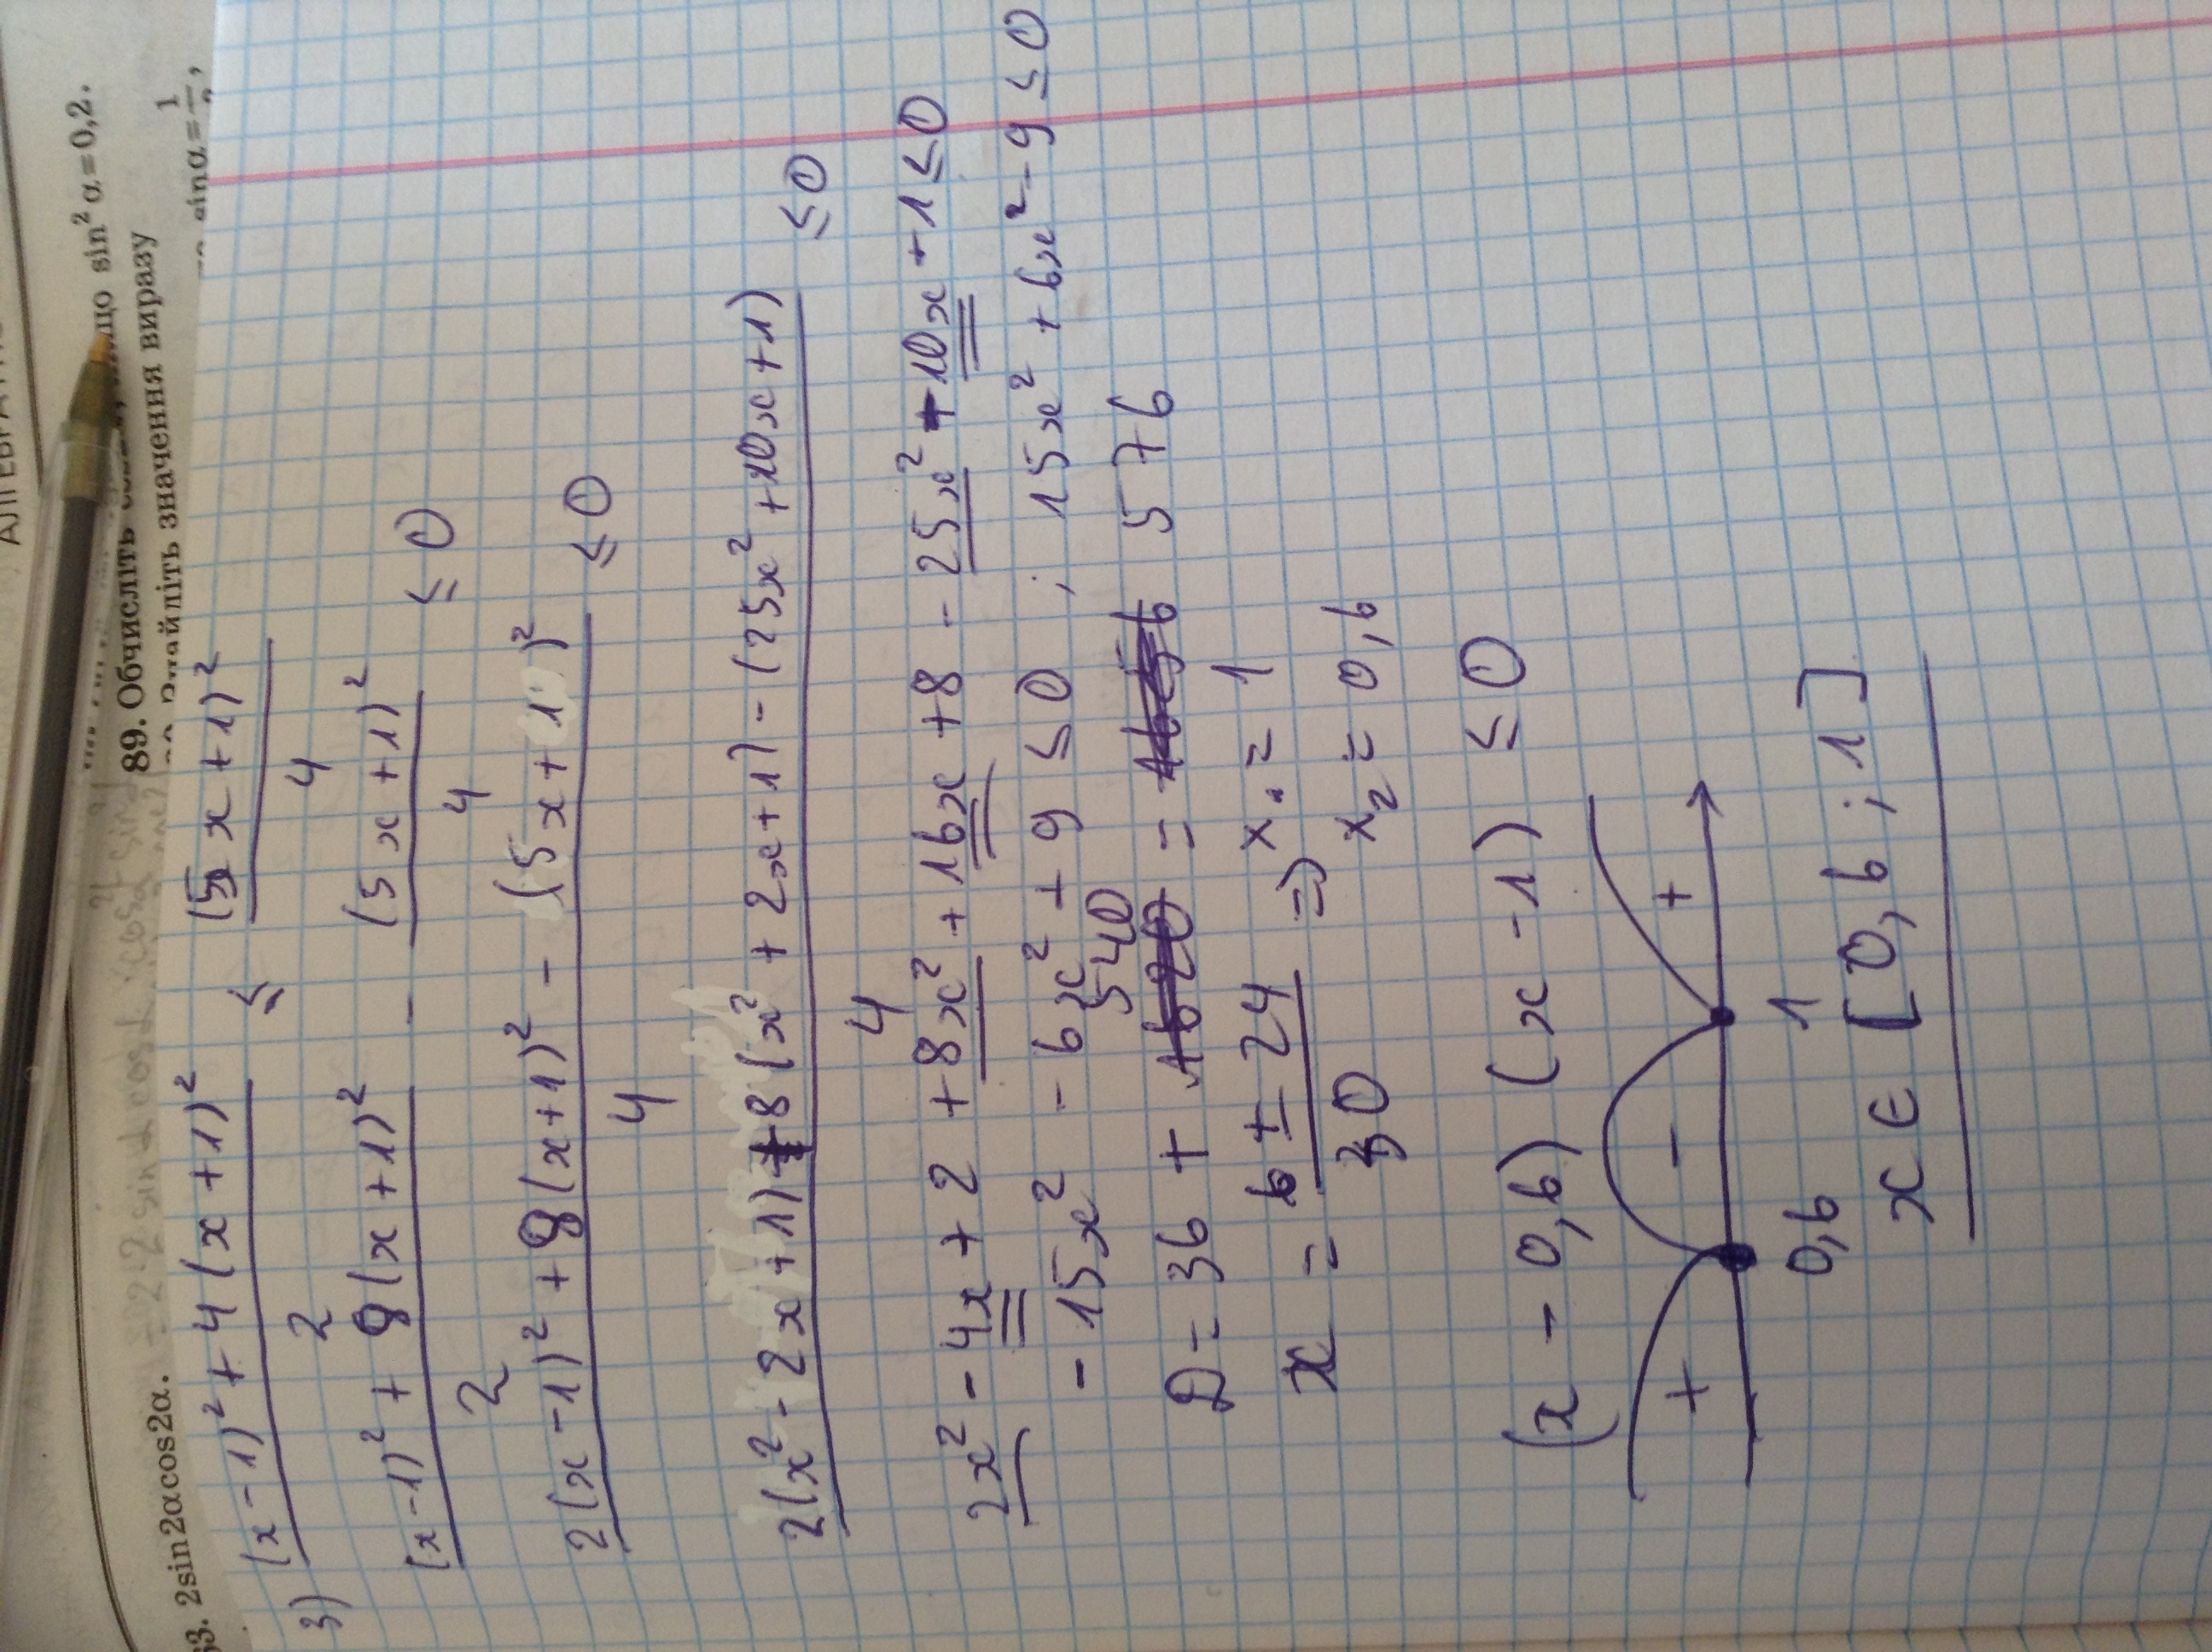 АЛГЕБРА
33. 2sin2αcos2α.
sin² α = 0,2.
89. Обчисліть
значення виразу
sin α = 1
3) (x-1)² + 4(x+1)² / 2 ≤ (5x+1)² / 4
(x-1)² + 8(x+1)² / 2 - (5x+1)² / 4 ≤ 0
2(x-1)² + 8(x+1)² - (5x+1)² / 4 ≤ 0
2(x² - 2x + 1) + 8(x² + 2x + 1) - (25x² + 10x + 1) / 4 ≤ 0
2x² - 4x + 2 + 8x² + 16x + 8 - 25x² + 10x + 1 ≤ 0
-15x² - 6x² + 9 ≤ 0 ; 15x² + 6x² - 9 ≤ 0
D = 36 + 540 = 576
x = 6 ± 24 / 30 => x₁ = 1
x₂ = 0,6
(x - 0,6)(x - 1) ≤ 0
+ - +
0,6 1
x ∈ [0,6 ; 1]